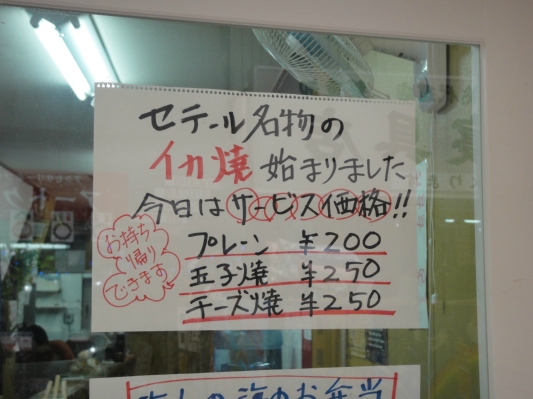 セテール名物の
イカ焼 始まりました
今日はサービス価格!!
お持ち
帰り
できます
プレーン ¥200
玉子焼 ¥250
チーズ焼 ¥250
お弁当